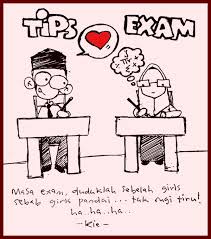 TIPS EXAM
masa exam, duduklah sebelah girls
sebab girls pandai... tak rugi tiru!
ha..ha..ha..
-kie-